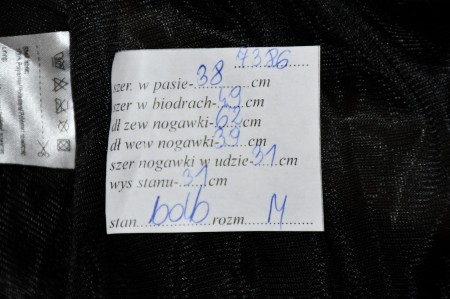 7386
szer. w pasie-38cm
szer w biodrach-49cm
dł zew nogawki-62cm
dł wew nogawki-39cm
szer nogawki w udzie-31cm
wys stanu-31cm
stan bdb rozm M